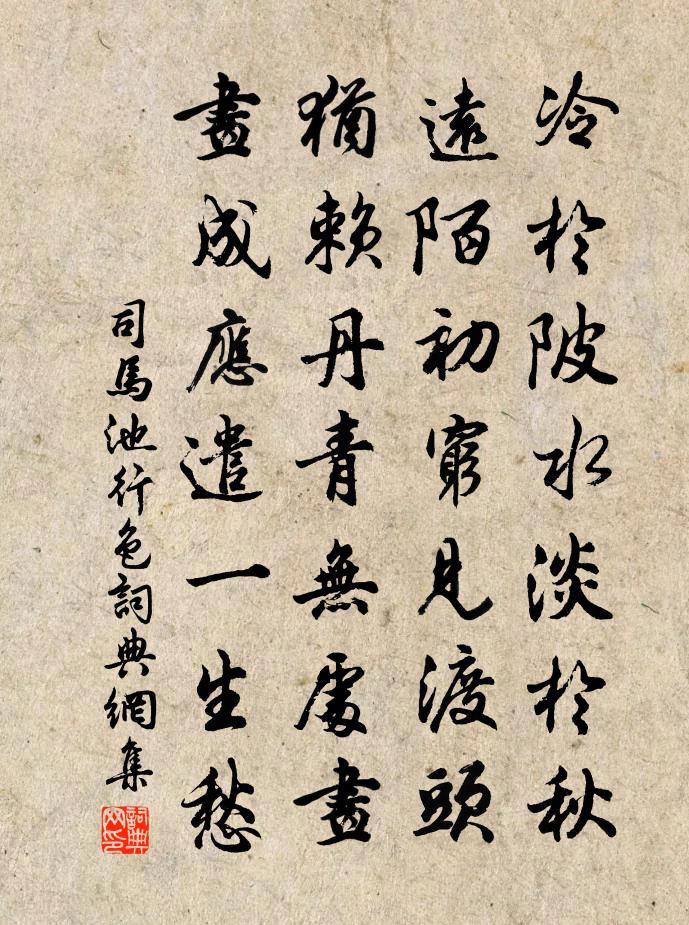 冷於陂水淡於秋
遠陌初窮見渡頭
猶賴丹青無處畫
畫成應遣一生愁
司馬池行色詞典網集
詞典网印